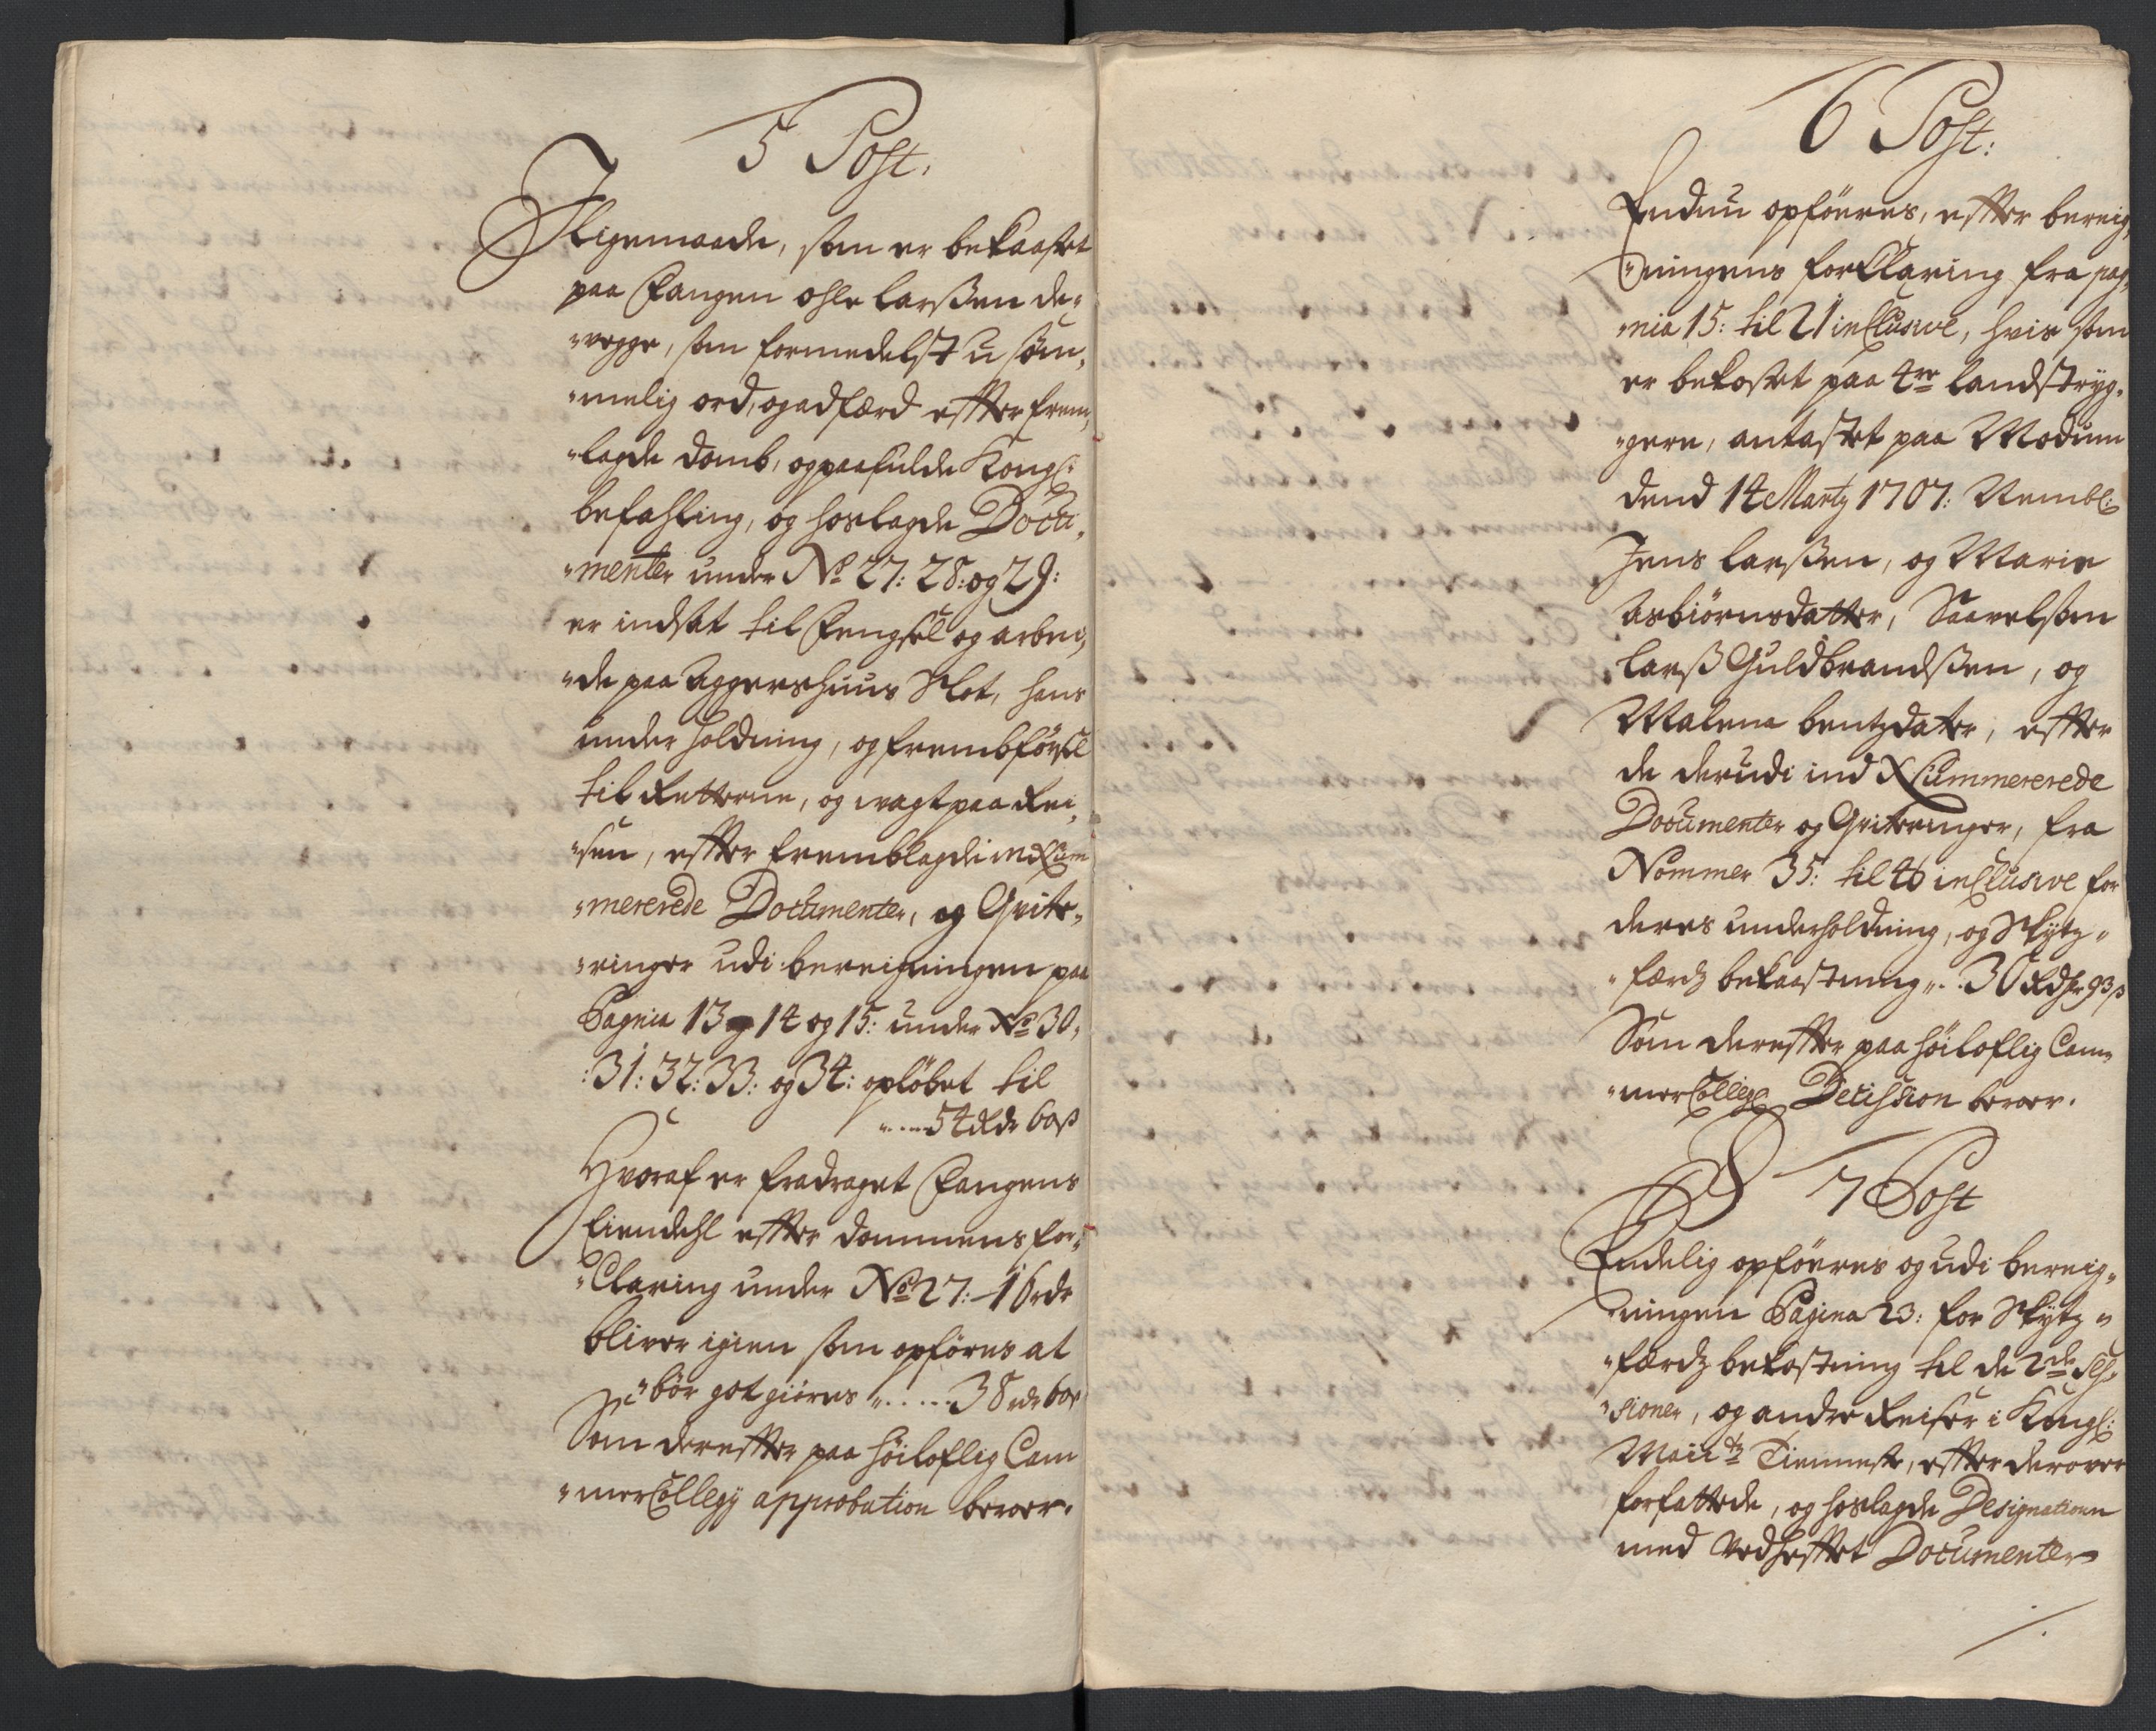 5 Post.
J ligemaade, som er bekaastet
paa Fangen ohle larßen de„
„vegge, som formedelst u søm„
„melig ord, og adfærd effter frem„
„lagde domb, og paafulde Kongl:
befahling, og hoslagde Docu„
„menter under No 27: 28: og 29:
er indsat til Fengsel og arbei„
„de paa Aggershuus Slot, hans
underholdning, og frembførsel
til Retterne, og vagt paa Rei„
„sen, effter fremblagde in Num
„mererede Documenter, og Qvite„
„ringer udi bereigningen paa
Pagnia 13 og 14 og 15: under No 30,
:31: 32: 33: og 34: opløbet til
„....54 Rdr 60 ß
Hvoraf er fradraget Fangens
Eiendehl effter dommens for„
„Claring under No 27: – 16 rdr
bliver igien som opføres at
bør got giøres „.....38 rdr 60 ß
Som dereffter paa høiloflig Cam
„merCollegij approbation beroer.
6 Post:
Endnu opføeres, effter bereig„
„ningens forklaring fra pag„
„nia 15: til 21 inclusive, hvis som
er bekostet paa 4re landstryg„
„gere, antastet paa Modum
dend 14 Marty 1707: Nembl:
Jens larßen, og Marie
Asbiørnsdatter, Saavelsom
larß Guldbrandßen, og
Malena bentzdater, effter
de derudi ind Nummererede
Documenter og Qviteringer, fra
Nommer 35: til 46 inclusive for
deres underholdning, og Skytz„
„færdz bekaastning „..30 Rdr 93 ß
Som dereffter paa høiloflig Cam„
„merCollegij Decission beroer.
7 Post
Endelig opføeres og udi bereig„
„ningen Pagina 23: for Skytz„
„færdz bekostning til de 2de Ses„
„sioner, og andre Reiser i Kongl:
Maiits Tienneste, effter derover
forfattede, og hoslagde Designation
med Vedhefftet Documenter